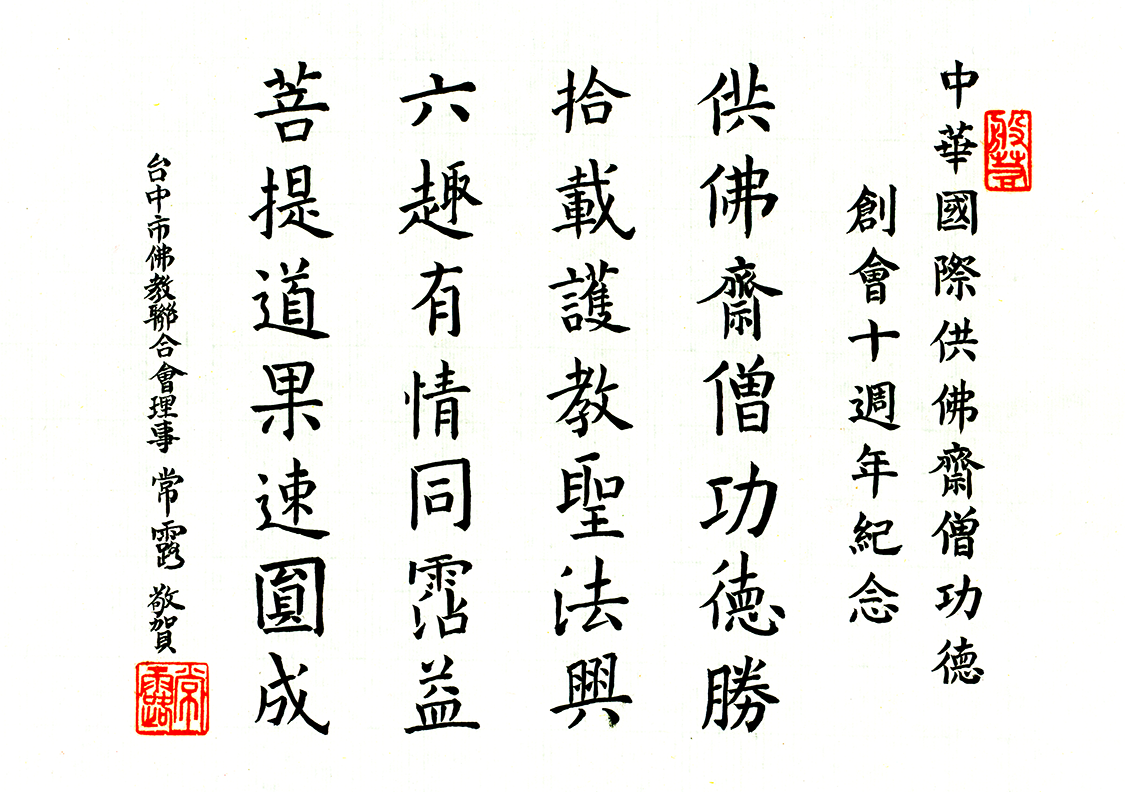 中華國際供佛齋僧功德
創會十週年紀念
供佛齋僧功德勝
拾載護教聖法興
六趣有情同霑益
菩提道果速圓成
台中市佛教聯合會理事 常露 敬賀
常露